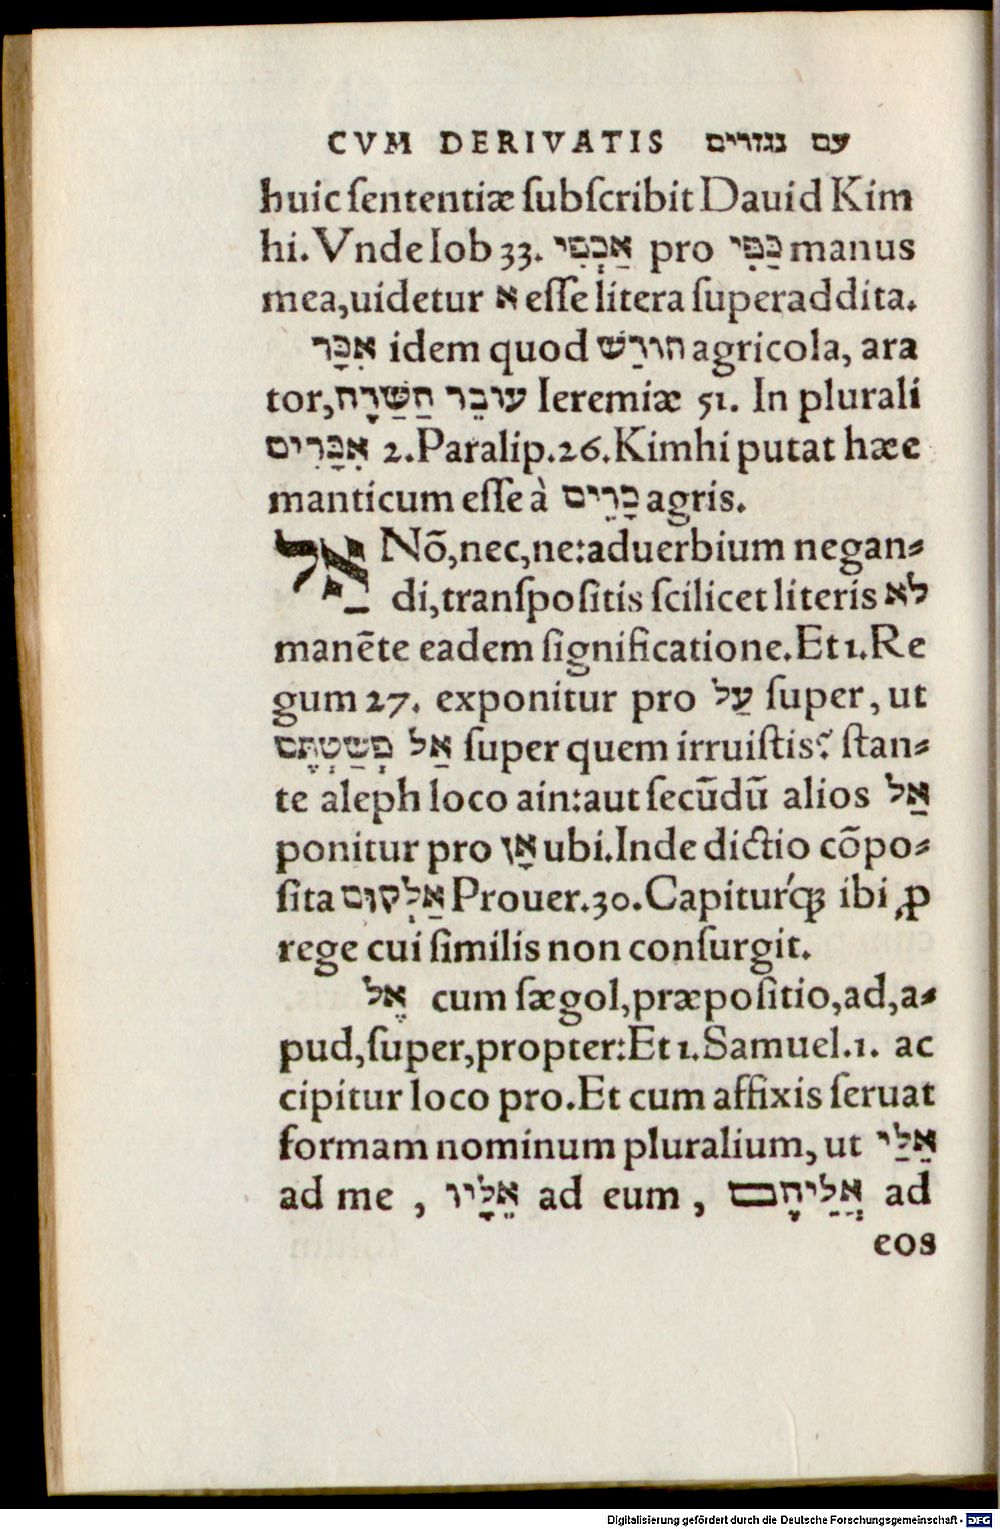 CVM DERIVATIS עם נגזרים
huic ſententiæ ſubſcribit Dauid Kim
hi. Vnde Iob 33. אַכְפִּי pro כַּפִּי manus
mea,uidetur א eſſe litera ſuperaddita.
אִכָּר idem quod חורַשׁ agricola, ara
tor,עובֵר הַשַּׁרָח Ieremiæ 51. In plurali
אִכָּרִים 2.Paralip.26.Kimhi putat hæc
manticum eſſe à כָּרִים agris.
אַל Nõ,nec,ne:aduerbium negan⸗
di,tranſpoſitis ſcilicet literis לא
manẽte eadem ſignificatione.Et 1.Re
gum 27. exponitur pro עַל ſuper, ut
אַל פְּשַׁטְתֶּם ſuper quem irruiſtis? ſtan⸗
te aleph loco ain:aut ſecũdũ alios אַל
ponitur pro אָן ubi.Inde dictio cõpo⸗
ſita אַלְקוּם Prouer.30.Capiturꝗ́ꝫ ibi ꝓ
rege cui ſimilis non conſurgit.
אֶל cum ſægol,præpoſitio,ad,a⸗
pud,ſuper,propter:Et 1.Samuel.1. ac
cipitur loco pro.Et cum affixis ſeruat
formam nominum pluralium, ut אֵלַי
ad me , אֵלָיו ad eum , אֲלֵיהָם ad
eos
Digitalisierung gefördert durch die Deutsche Forschungsgemeinschaft - DFG